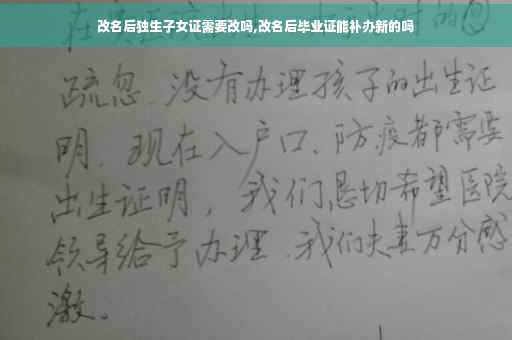 改名后独生子女证需要改吗,改名后毕业证能补办新的吗
疏忽、没有办理孩子的出生证
明、现在入户口、防疫都需要
出生证明，我们恳切希望医院
领导给予办理、我们夫妻万分感
激。